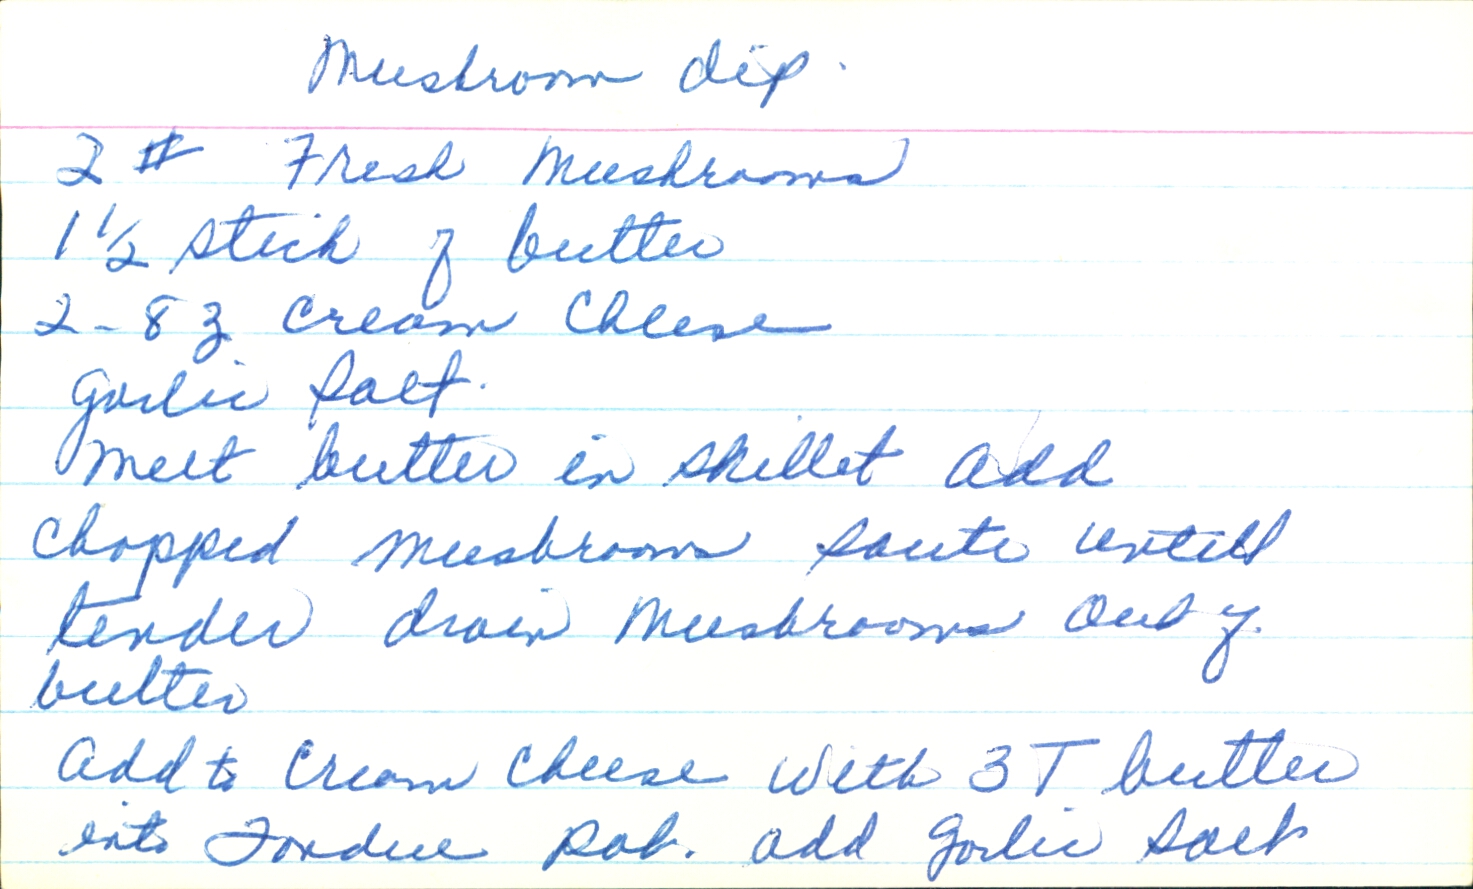 Mushroom dip.
2 # Fresh Mushrooms
1 1/2 stick of butter
2 - 8 oz Cream Cheese
Garlic Salt.
Melt butter in skillet add
chopped mushroom saute untill
tender drain mushrooms out of
butter
add to cream cheese with 3 T butter
into Fondue pot. add garlic salt